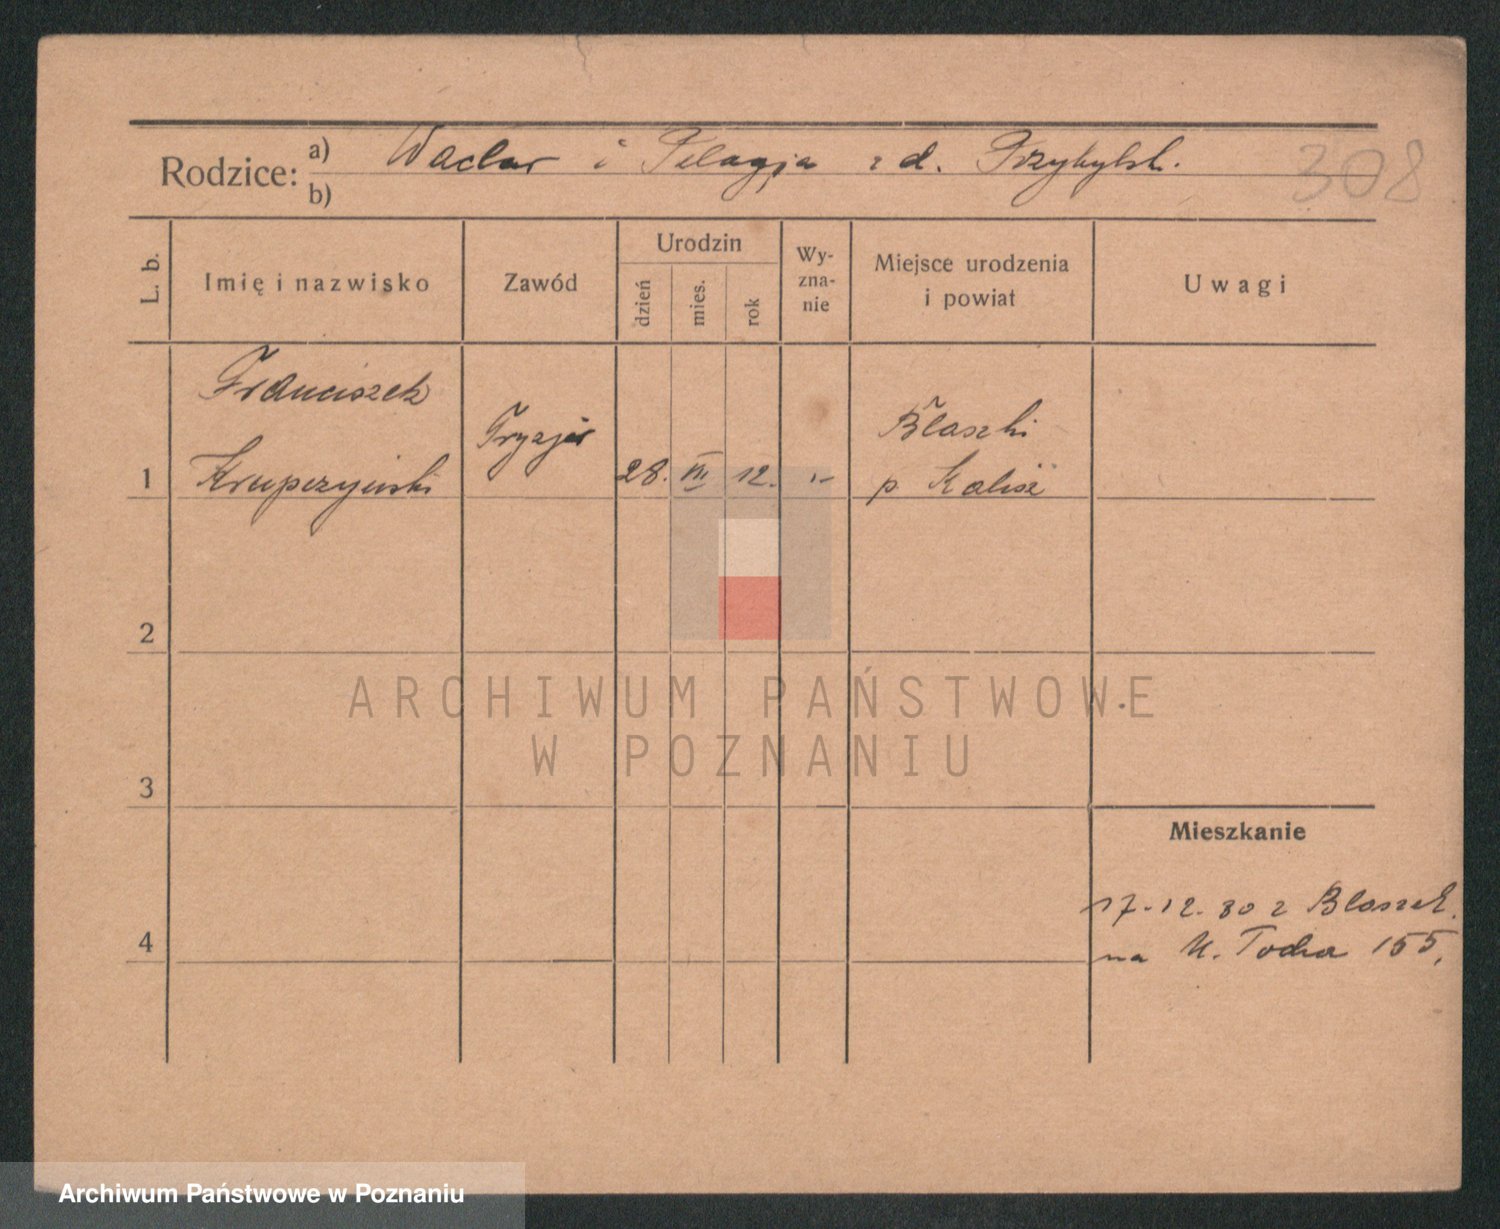 308
Rodzice: a) Wacław i Pelagja z d. Przybylsk.
b)
L. b. Imię i nazwisko Zawód Urodzin dzień mies. rok Wy-zna-nie Miejsce urodzenia i powiat Uwagi
Franciszek
Fryzjer Błaszki
1 Krupczyński 28. III 12. p. Kalisz
2
ARCHIWUM PAŃSTWOWE
W POZNANIU
3
Mieszkanie
17.12.30 z Błaszek.
4 na 155.
Archiwum Państwowe w Poznaniu